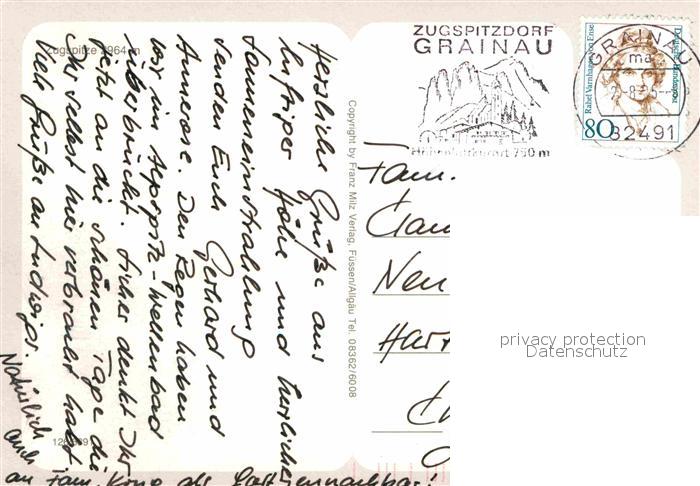 Zugspitze 2964 m
Herzliche Grüße aus
luftiger Höhe und herrlicher
Sonneneinstrahlung
senden Euch Gerhard und
Annerose. Den Regen haben
wir im Alpspitz-Wellenbad
überbrückt. Sicher denkt Ihr
jetzt an die schönen Tage die
Ihr selbst hier verbracht habt.
Viele Grüße an Ludwigs.
Natürlich
auch
an Fam. die Gartennachbar!
Copyright by Franz Milz Verlag, Füssen/Allgäu Tel. 08362/6008
ZUGSPITZDORF
GRAINAU
Höhenluftkurort 750 m
GRAINAU
ma
82491
Rahel Varnhagen von Ense
Deutsche Bundespost
80
Fam.
privacy protection
Datenschutz